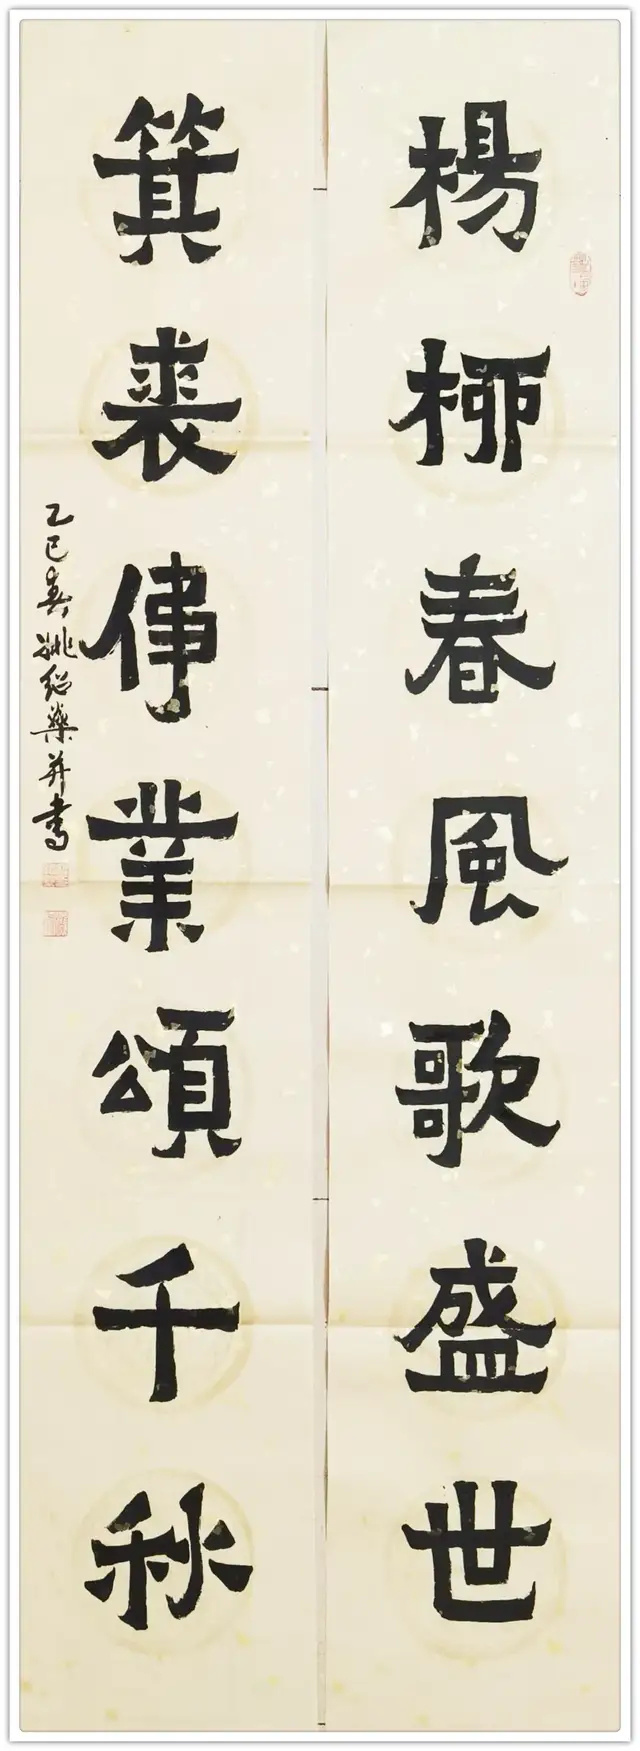 楊柳春風歌盛世
箕裘偉業頌千秋
乙巳春姚纪樂并書